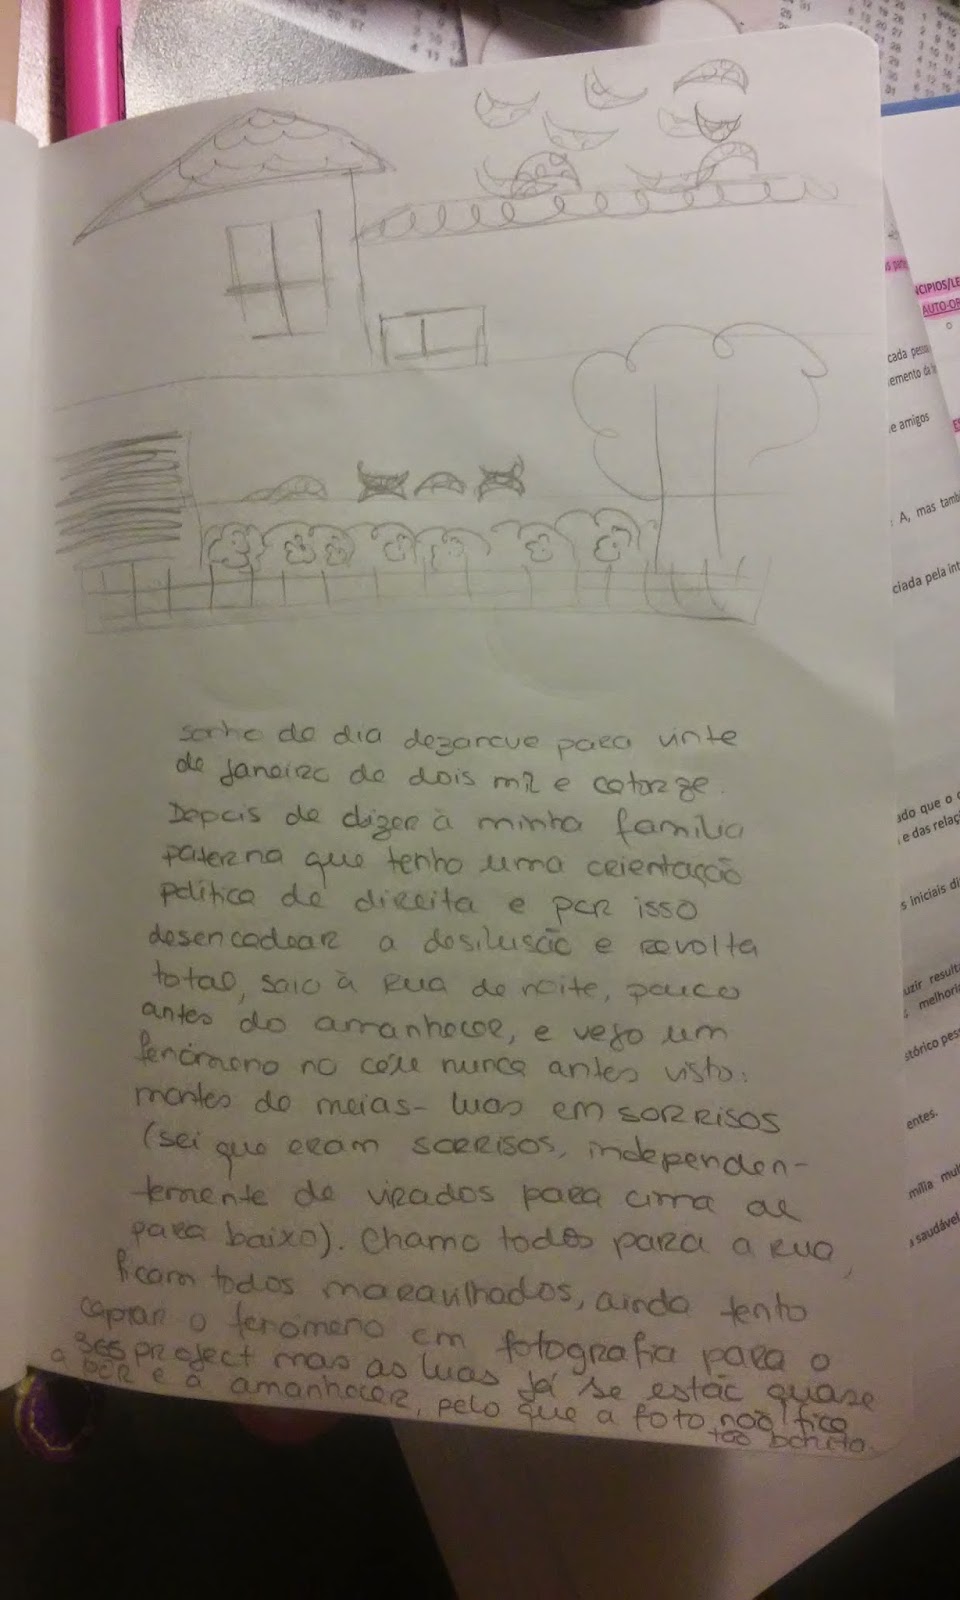 sonho do dia dezanove para vinte
de janeiro de dois mil e catorze.
Depois de dizer à minha família
paterna que tenho uma orientação
política de direita e por isso
desencadear a desilusão e revolta
total, saio à rua de noite, pouco
antes do amanhecer, e vejo um
fenómeno no céu nunca antes visto:
montes de meias-luas em sorrisos
(sei que eram sorrisos, independen-
temente de virados para cima ou
para baixo). Chamo todos para a rua,
ficam todos maravilhados, ainda tento
captar o fenómeno em fotografia para o
365 project mas as luas já se estão quase
a pôr e a amanhecer, pelo que a foto não fica
tão bonita.
NCIPIOS/LE
AUTO-OR
cada pesso
emento da
e amigos
A, mas tamb
ciada pela int
ado que o
e das relaç
s iniciais di
uzir result
melhoria
stórico pess
entes.
mília mul
a saudável